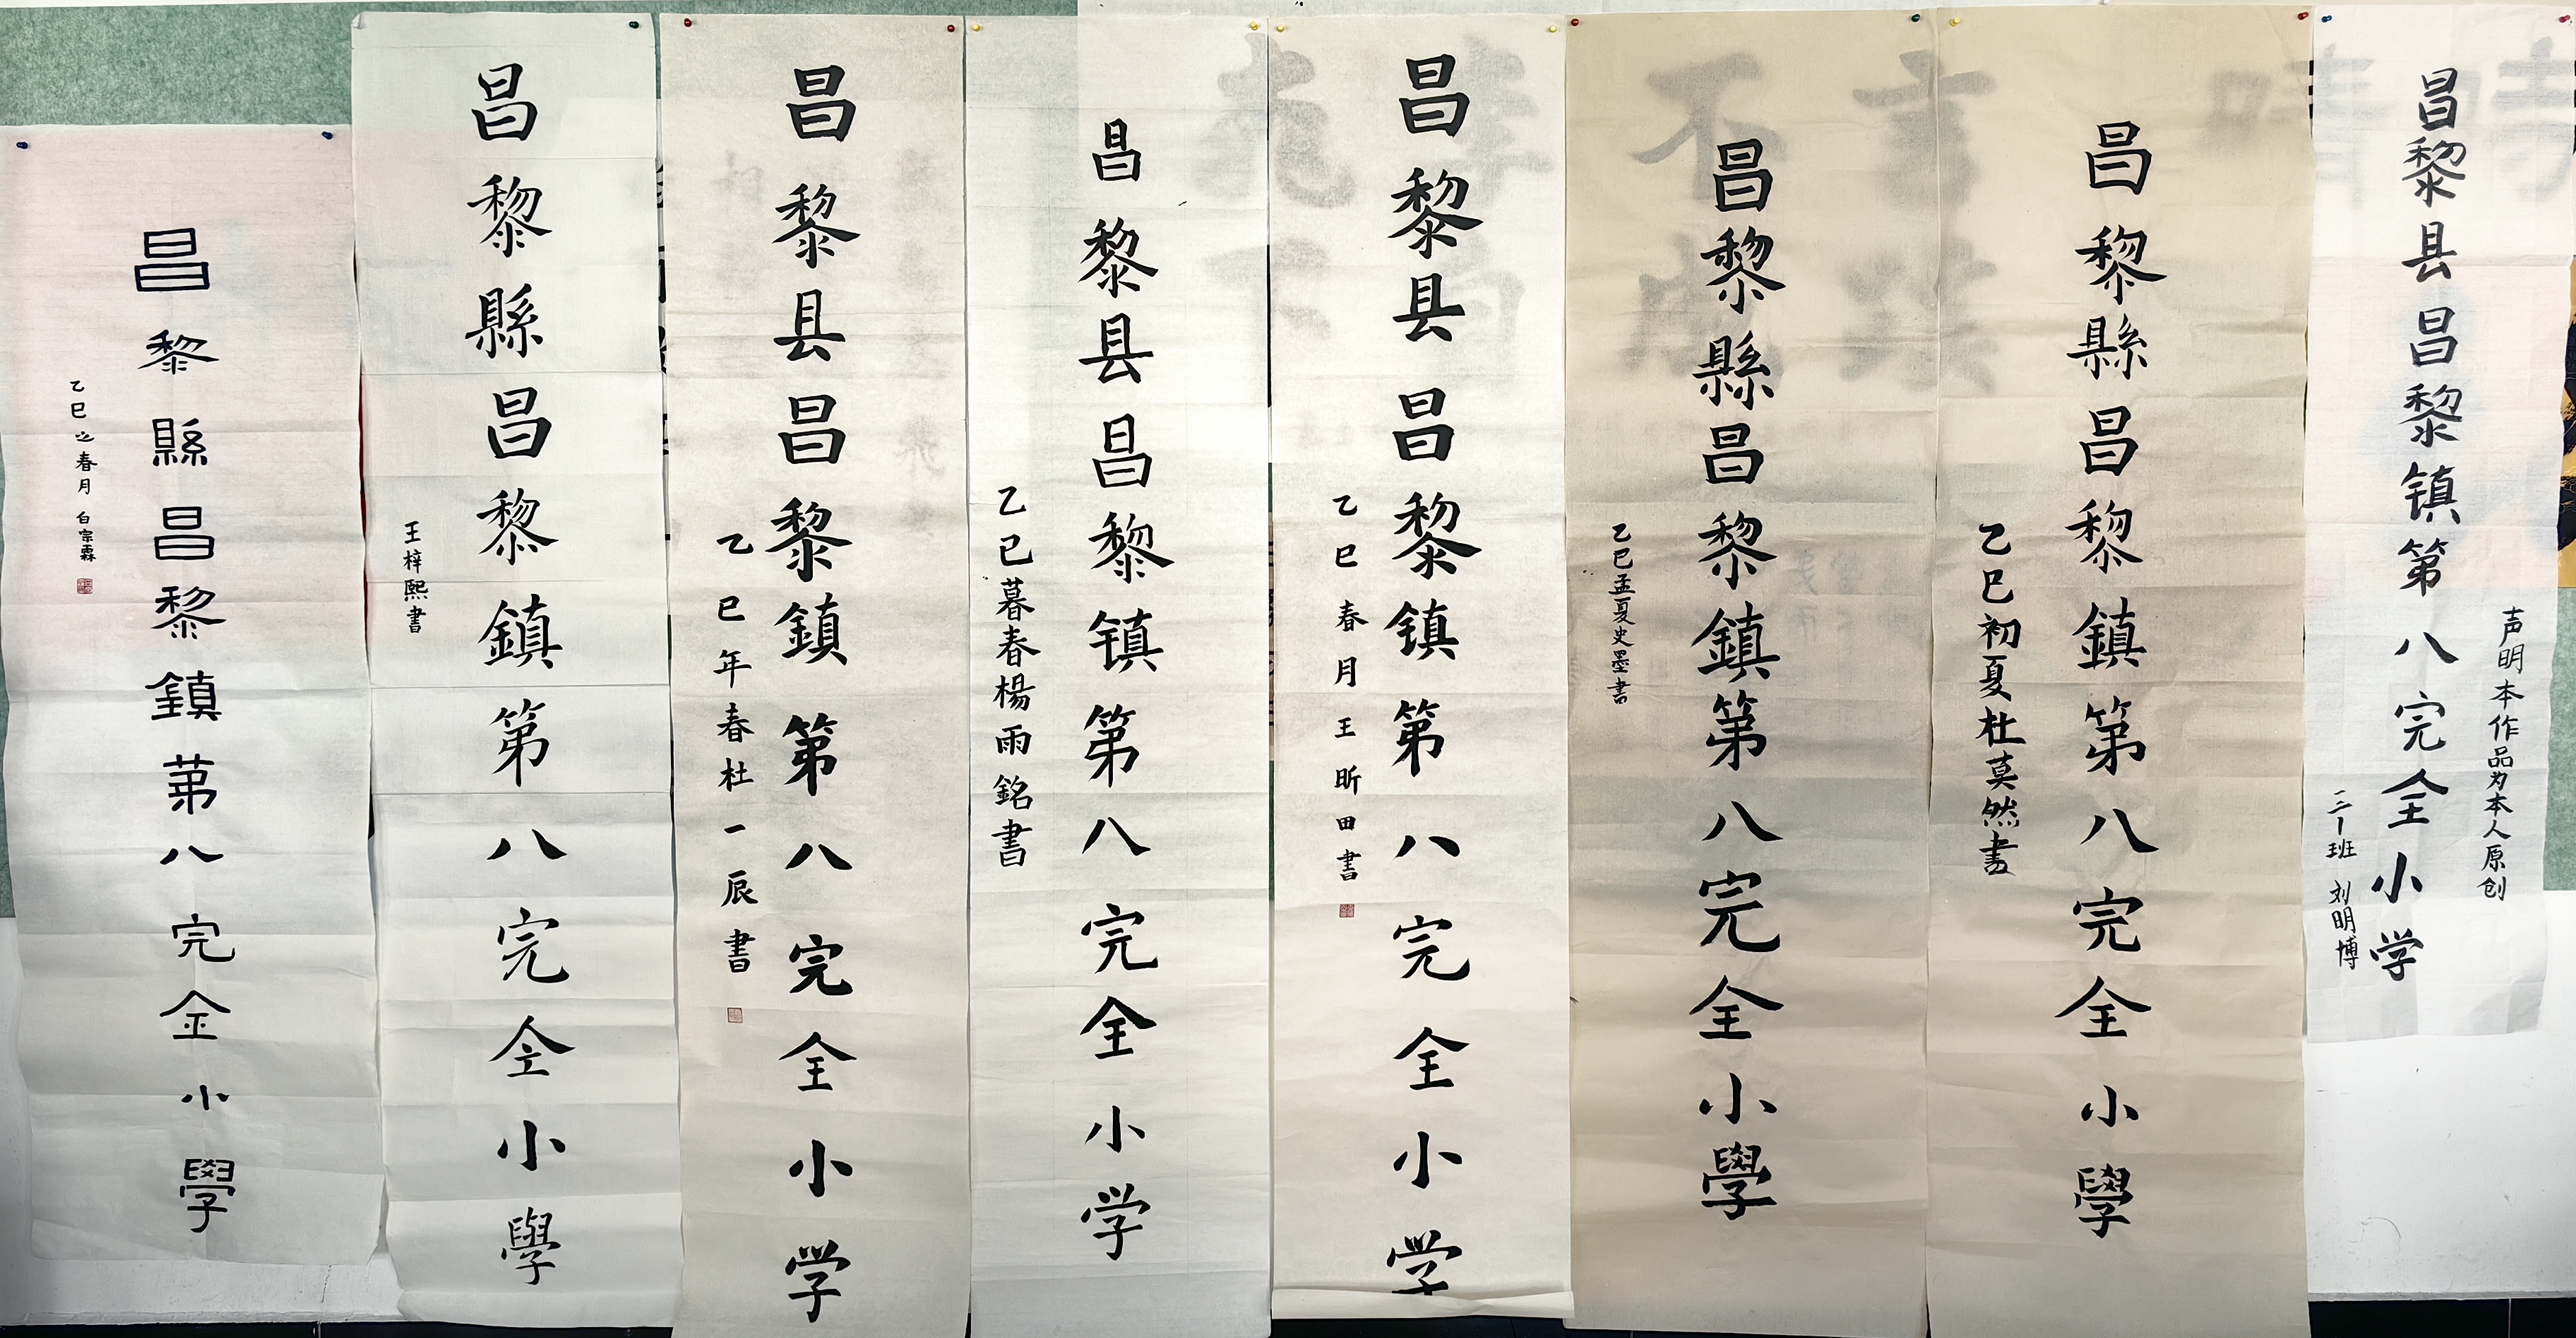 声明本作品为本人原创
昌黎县昌黎镇第八完全小学
班 刘明博
昌黎縣昌黎鎮第八完全小學
乙巳初夏杜莫然書
昌黎縣昌黎鎮第八完全小學
乙巳孟夏史墨書
昌黎县昌黎镇第八完全小学
乙巳春月王昕田書
昌黎县昌黎镇第八完全小学
乙巳暮春楊雨銘書
昌黎县昌黎鎮第八完全小学
乙巳年春杜一辰書
昌黎縣昌黎鎮第八完全小學
王梓熙書
昌黎縣昌黎鎮苐八完全小學
乙巳之春月 白宗霖